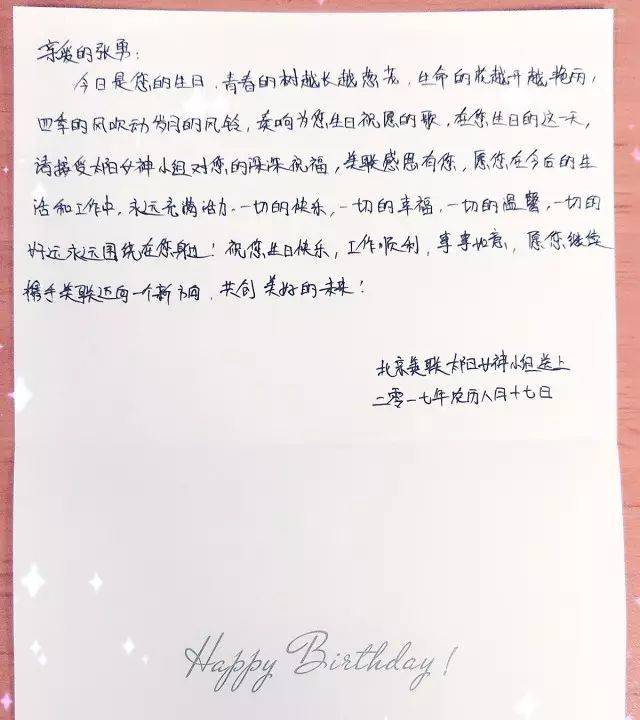 亲爱的张勇:
今日是您的生日,青春的树越长越葱茏,生命的花越开越艳丽,
四季的风吹动岁月的风铃,奏响为您生日祝愿的歌,在您生日的这一天,
请接受太阳女神小组对您的深深祝福,美联感恩有您,愿您在今后的生
活和工作中,永远充满活力,一切的快乐,一切的幸福,一切的温馨,一切的
好运永远围绕在您身边!祝您生日快乐,工作顺利,事事如意,愿您继续
携手美联迈向一个新方向,共创美好的未来!
北京美联太阳女神小组送上
二零一七年农历八月十七日
Happy Birthday!